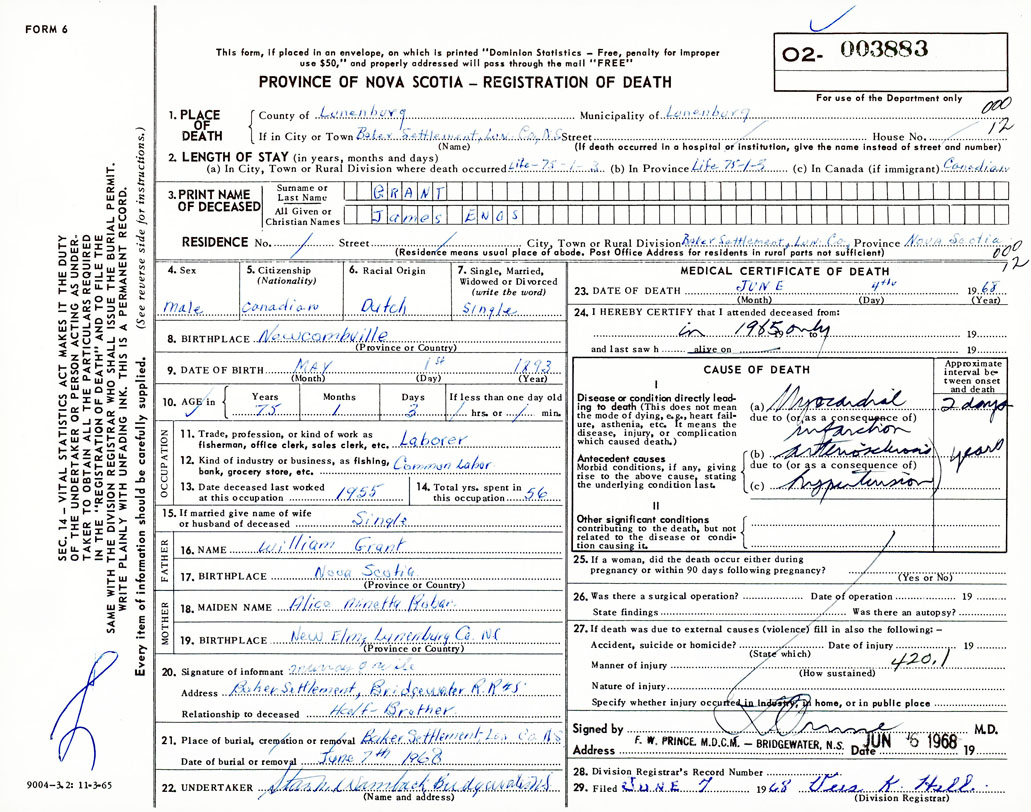 FORM 6
This form, if placed in an envelope, on which is printed "Dominion Statistics – Free, penalty for improper
use $50," and properly addressed will pass through the mail "FREE"
PROVINCE OF NOVA SCOTIA – REGISTRATION OF DEATH
02- 003883
For use of the Department only
000
12
1. PLACE OF DEATH
County of Lunenburg Municipality of Lunenburg
If in City or Town Baker Settlement, Lun. Co, N.S Street House No.
(Name) (If death occurred in a hospital or institution, give the name instead of street and number)
2. LENGTH OF STAY (in years, months and days)
(a) In City, Town or Rural Division where death occurred Life-75-1-3 (b) In Province Life 75-1-3 (c) In Canada (if immigrant) Canadian
3. PRINT NAME OF DECEASED
Surname or Last Name GRANT
All Given or Christian Names James ENOS
RESIDENCE No. / Street / City, Town or Rural Division Baker Settlement, Lun. Co. Province Nova Scotia
(Residence means usual place of abode. Post Office Address for residents in rural parts not sufficient)
000
12
4. Sex
male
5. Citizenship
(Nationality)
Canadian
6. Racial Origin
Dutch
7. Single, Married,
Widowed or Divorced
(write the word)
Single
8. BIRTHPLACE Newcombville
(Province or Country)
9. DATE OF BIRTH MAY 1st 1893
(Month) (Day) (Year)
10. AGE in Years Months Days If less than one day old
75 1 3 / hrs. or / min.
OCCUPATION
11. Trade, profession, or kind of work as
fisherman, office clerk, sales clerk, etc. Laborer
12. Kind of industry or business, as fishing,
bank, grocery store, etc. Common Labor
13. Date deceased last worked
at this occupation 1955
14. Total yrs. spent in
this occupation 56
15. If married give name of wife
or husband of deceased Single
FATHER
16. NAME William Grant
17. BIRTHPLACE Nova Scotia
(Province or Country)
MOTHER
18. MAIDEN NAME Alice Annetta
19. BIRTHPLACE New Elm, Lunenburg Co. NS
(Province or Country)
20. Signature of informant
Address Baker Settlement, Bridgewater R.R#5
Relationship to deceased Half-Brother
21. Place of burial, cremation or removal Baker Settlement, Lun Co. NS
Date of burial or removal June 7th 1968
22. UNDERTAKER Bridgewater N.S
(Name and address)
MEDICAL CERTIFICATE OF DEATH
23. DATE OF DEATH JUNE 4th 1968
(Month) (Day) (Year)
24. I HEREBY CERTIFY that I attended deceased from:
in 1965 only 19 to 19
and last saw h alive on 19
CAUSE OF DEATH
Approximate interval between onset and death
I
Disease or condition directly leading to death (This does not
mean the mode of dying, e.g., heart failure, asthenia, etc. It means the
disease, injury, or complication
which caused death.)
(a) Myocardial 2 days
due to (or as a consequence of)
infarction
Antecedent causes
Morbid conditions, if any, giving
rise to the above cause, stating
the underlying condition last.
(b) arteriosclerosis years
due to (or as a consequence of)
(c) hypertension
II
Other significant conditions
contributing to the death, but not
related to the disease or condition
causing it.
25. If a woman, did the death occur either during
pregnancy or within 90 days following pregnancy?
(Yes or No)
26. Was there a surgical operation? Date of operation 19
State findings Was there an autopsy?
27. If death was due to external causes (violence) fill in also the following: –
Accident, suicide or homicide? Date of injury 19
(State which)
Manner of injury 420.1
(How sustained)
Nature of injury
Specify whether injury occurred in Industry, in home, or in public place
Signed by M.D.
F. W. PRINCE. M.D.C.M. – BRIDGEWATER, N.S.
Address Date JUN 6 1968 19
28. Division Registrar's Record Number
29. Filed JUNE 7 1968 K.
(Division Registrar)
SEC. 14 – VITAL STATISTICS ACT MAKES IT THE DUTY
OF THE UNDERTAKER OR PERSON ACTING AS UNDER-
TAKER TO OBTAIN ALL THE PARTICULARS REQUIRED
IN THE "REGISTRATION OF DEATH" AND TO FILE THE
SAME WITH THE DIVISION REGISTRAR WHO SHALL ISSUE THE BURIAL PERMIT.
WRITE PLAINLY WITH UNFADING INK. THIS IS A PERMANENT RECORD.
Every item of information should be carefully supplied. (See reverse side for instructions.)
9004-3.2: 11-3-65